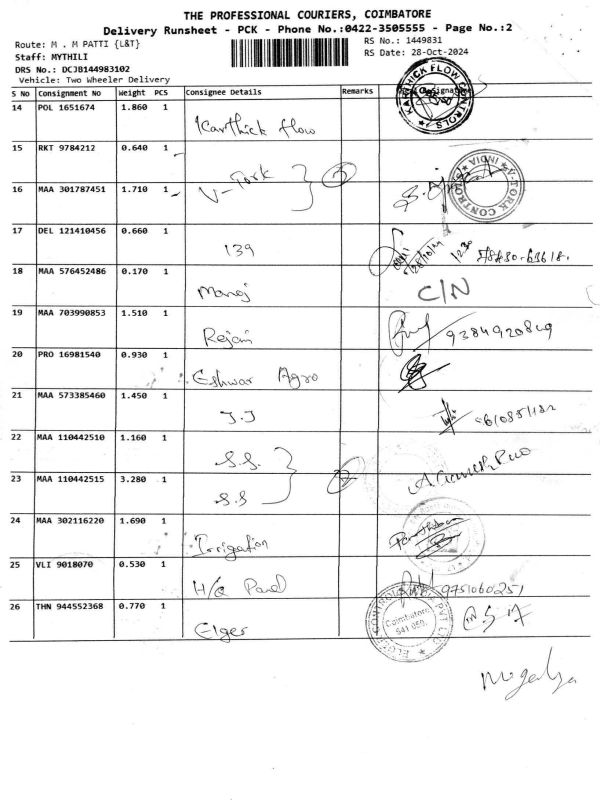 THE PROFESSIONAL COURIERS, COIMBATORE
Delivery Runsheet - PCK - Phone No.:0422-3505555 - Page No.:2
Route: M . M PATTI {L&T}
RS No.: 1449831
Staff: MYTHILI
RS Date: 28-Oct-2024
DRS No.: DCJB144983102
Vehicle: Two Wheeler Delivery
S No Consignment No Weight PCS Consignee Details Remarks
KARTHICK FLOW CONTROLS
14 POL 1651674 1.860 1 Karthick flow
15 RKT 9784212 0.640 1 V-Tork 2
16 MAA 301787451 1.710 1
V-TORK CONTROLS INDIA
17 DEL 121410456 0.660 1 139 28/10/24 12:30
18 MAA 576452486 0.170 1 Manoj C/N
19 MAA 703990853 1.510 1 Rejani 9384920849
20 PRO 16981540 0.930 1 Eshwar Agro
21 MAA 573385460 1.450 1 J.J
22 MAA 110442510 1.160 1 S.S. 2
23 MAA 110442515 3.280 1 S.S
24 MAA 302116220 1.690 1 Irrigation
25 VLI 9018070 0.530 1 H/Q 9751060251
26 THN 944552368 0.770 1 Elger
Coimbatore
641 050.
PVT LTD